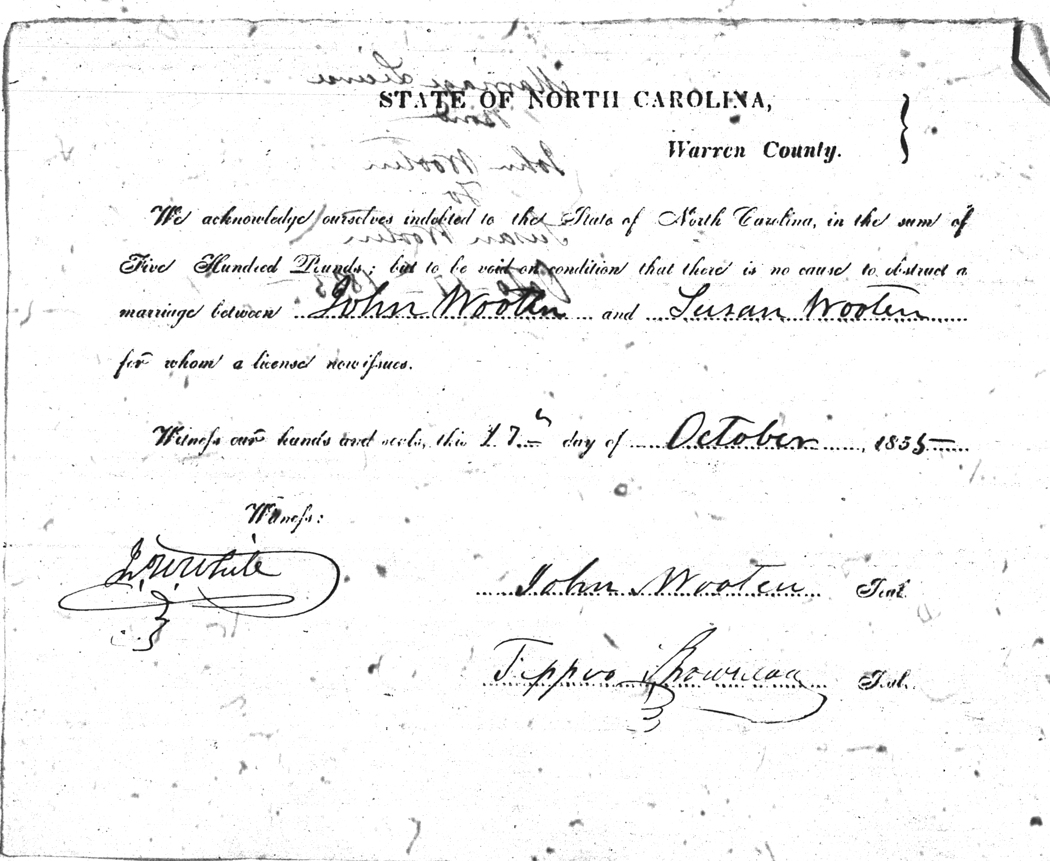 STATE OF NORTH CAROLINA,
Warren County.
We acknowledge ourselves indebted to the State of North Carolina, in the sum of
Five Hundred Pounds; but to be void on condition that there is no cause to obstruct a
marriage between John Wooten and Susan Wooten
for whom a license now issues.
Witness our hands and seals, this 17th day of October, 1855
Witness:
White
John Wooten Seal
Seal
Marriage License
Bond
John Wooten
To
Susan Wooten